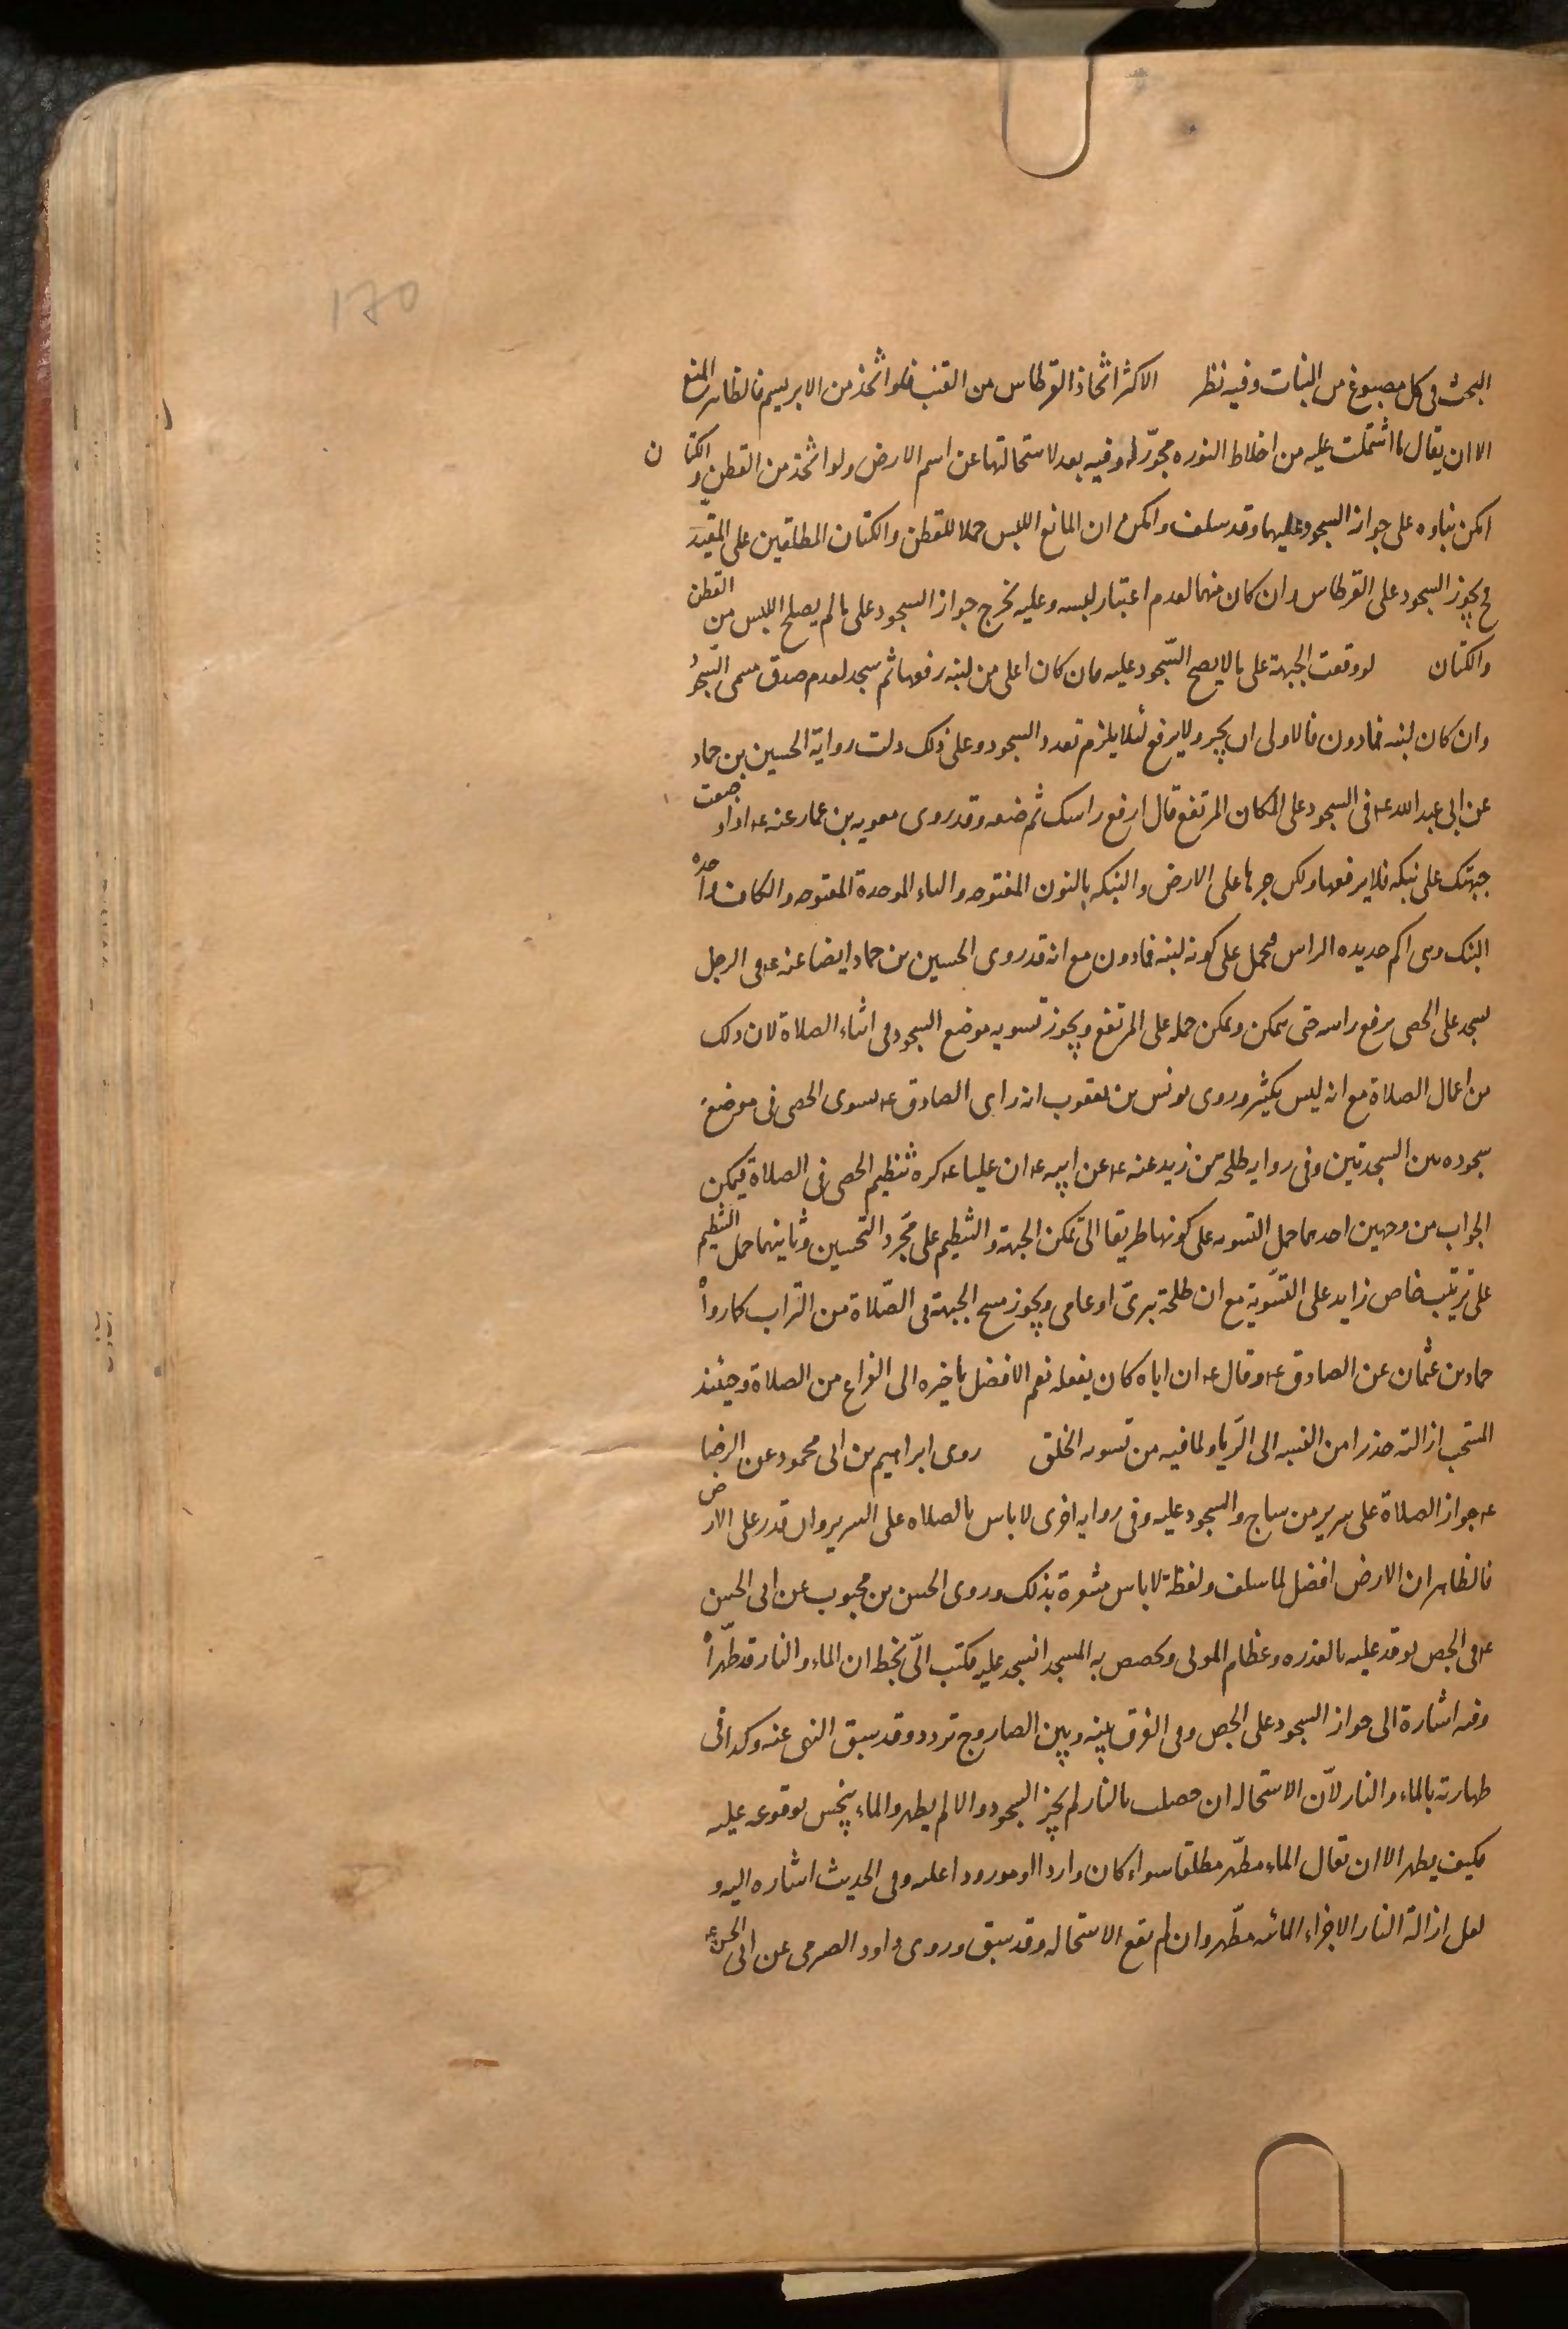 170
البحث فى كل مصبوغ من النبات وفيه نظر الاكثر اتخاذ القرطاس من القنب فلو اتخذ من الابريسم فالظاهر المنع
الا ان يقال ما اشتملت عليه من اخلاط النوره مجوّز له وفيه بعد لاستحالتها عن اسم الارض ولو اتخذ من القطن و الكتان
امكن بناوه على جواز السجود عليهما وقد سلف وامكن ان المانع اللبس حملا للقطن والكتان المطلقين على المقيد
فح يجوز السجود على القرطاس وان كان منهما لعدم اعتبار لبسه وعليه يخرج جواز السجود على ما لم يصلح اللبس من القطن
والكتان لو وقعت الجبهة على ما لا يصح السّجود عليه فان كان اعلى من لبنه رفعها ثم سجد لعدم صدق مسمى السّجود
وان كان لبنه فمادون فالاولى ان يجر ولا يرفع لئلا يلزم تعدد السجود وعلى ذلك دلت رواية الحسين بن حماد
عن ابى عبد الله ع فى السجود على المكان المرتفع قال ارفع راسك ثم ضعه وقد روى معويه بن عمار عنه ع اذا وضعت
جبهتك على نبكه فلا يرفعها ولكن جرها على الارض والنبكه بالنون المفتوحه والباء الموحدة المفتوحه والكاف واحده
النبك وهى اكم حديده الراس فيحمل على كونه لبنه فمادون مع انه قد روى الحسين بن حماد ايضا عنه ع فى الرجل
يسجد على الحصى يرفع راسه حتى يمكن ويمكن حمله على المرتفع ويجوز تسويه موضع السجود فى اثناء الصلاة لان ذلك
من اعمال الصلاة مع انه ليس بكثير وروى يونس بن يعقوب انه راى الصادق ع يسوى الحصى فى موضع
سجوده بين السجدتين وفى روايه طلحه بن زيد عنه ع عن ابيه ع ان عليا ع كره تنظيم الحصى فى الصلاة فيمكن
الجواب من وجهين احدهما حمل التسويه على كونها طريقا الى تمكن الجبهة والتنظيم على مجرد التحسين وثانيهما حمل التنظيم
على ترتيب خاص زايد على التسوية مع ان طلحة بترىّ او عامى ويجوز مسح الجبهة فى الصّلاة من التراب كما رواه
حماد بن عثمان عن الصادق ع وقال ع ان اباه كان يفعله نعم الافضل تاخيره الى الفراع من الصلاة وحينئذ
المستحب ازالته حذرا من النسبه الى الرّيا ولما فيه من تسويه الخلق روى ابراهيم بن ابى محمود عن الرضا
ع جواز الصلاة على سرير من ساج والسجود عليه وفى روايه اخرى لا باس بالصلاه على السرير وان قدر على الارض
فالظاهر ان الارض افضل لما سلف ولفظة لا باس مشعرة بذلك وروى الحسن بن محبوب عن ابى الحسن
ع فى الجص يوقد عليه بالعذره وعظام الموتى ويجصص به المسجد ايسجد عليه فكتب الىّ بخطه ان الماء والنار قد طهّراه
وفيه اشارة الى جواز السجود على الجص وفى الفرق بينه وبين الصاروج تردد وقد سبق النهى عنه وكذا فى
طهارته بالماء والنار لانّ الاستحاله ان حصلت بالنار لم يجز السجود والا لم يطهر والماء ينجس بوقوعه عليه
فكيف يطهر الا ان يقال الماء مطهّر مطلقا سواء كان واردا او مورودا عليه وفى الحديث اشاره اليه و
لعل ازالة النار الاجزاء المائيه مطهّر وان لم تقع الاستحاله وقد سبق وروى داود الصرمى عن ابى الحسن ع